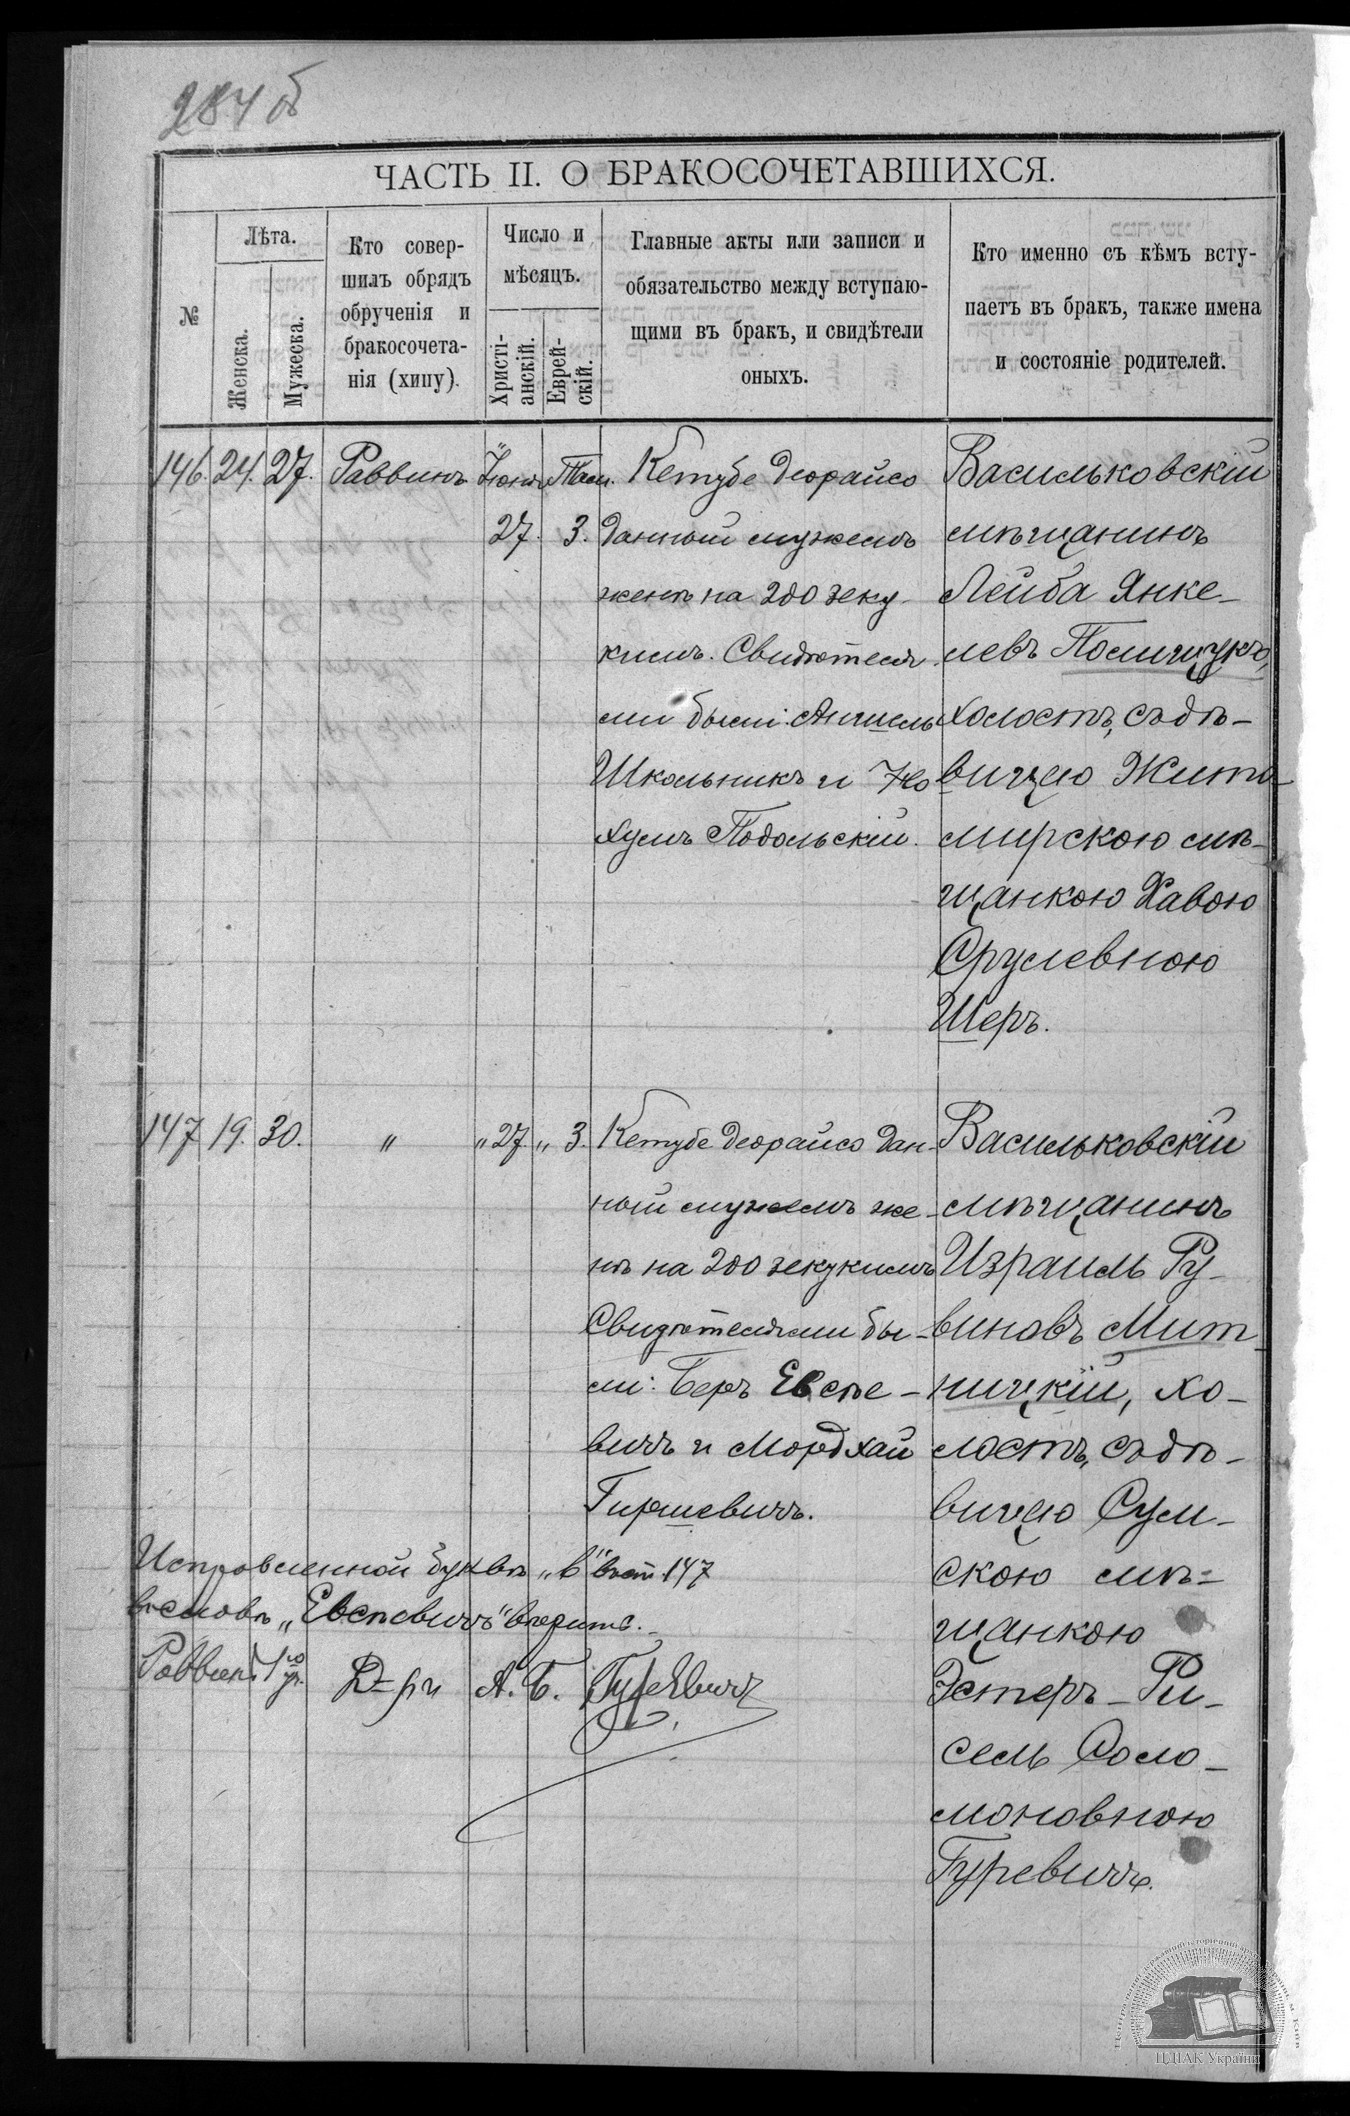 284 об
ЧАСТЬ II. О БРАКОСОЧЕТАВШИХСЯ.
№
Лѣта.
Женска.
Мужеска.
Кто совер-
шилъ обрядъ
обрученія и
бракосочета-
нія (хипу).
Число и
мѣсяцъ.
Христі-
анскій.
Еврей-
скій.
Главные акты или записи и
обязательство между вступаю-
щими въ бракъ, и свидѣтели
оныхъ.
Кто именно съ кѣмъ всту-
паетъ въ бракъ, также имена
и состояніе родителей.
146. 24. 27. Раввинъ Іюнь Там.
27. 3.
Кетубе деорайсо
данный мужемъ
женѣ на 200 зеку-
кимъ. Свидѣтеля-
ми были: Аншель
Школьникъ и Но
хумъ Подольскій.
Васильковскій
мѣщанинъ
Лейба Янке-
левъ Полищукъ,
холостъ, съ дѣ-
вицею Жито-
мирскою мѣ-
щанкою Хавою
Срулевною
Шеръ.
147 19. 30. " " 27. " 3.
Кетубе деорайсо дан-
ный мужемъ же-
нѣ на 200 зекукимъ
Свидѣтелями бы-
ли: Беръ Евсѣе-
вичъ и Мордхай
Гиршевичъ.
Васильковскій
мѣщанинъ
Израиль Ру-
виновъ Мит-
ницкій, хо-
лостъ, съ дѣ-
вицею Сум-
скою мѣ-
щанкою
Эстеръ-Ри-
сель Соло-
моновною
Гуревичъ.
Исправленной буквѣ „в" въ ст 147
въ словѣ „Евсѣевичъ" вѣрить.
Раввинъ
Д-ръ А. Б. Гуревичъ
ЦДІАК України